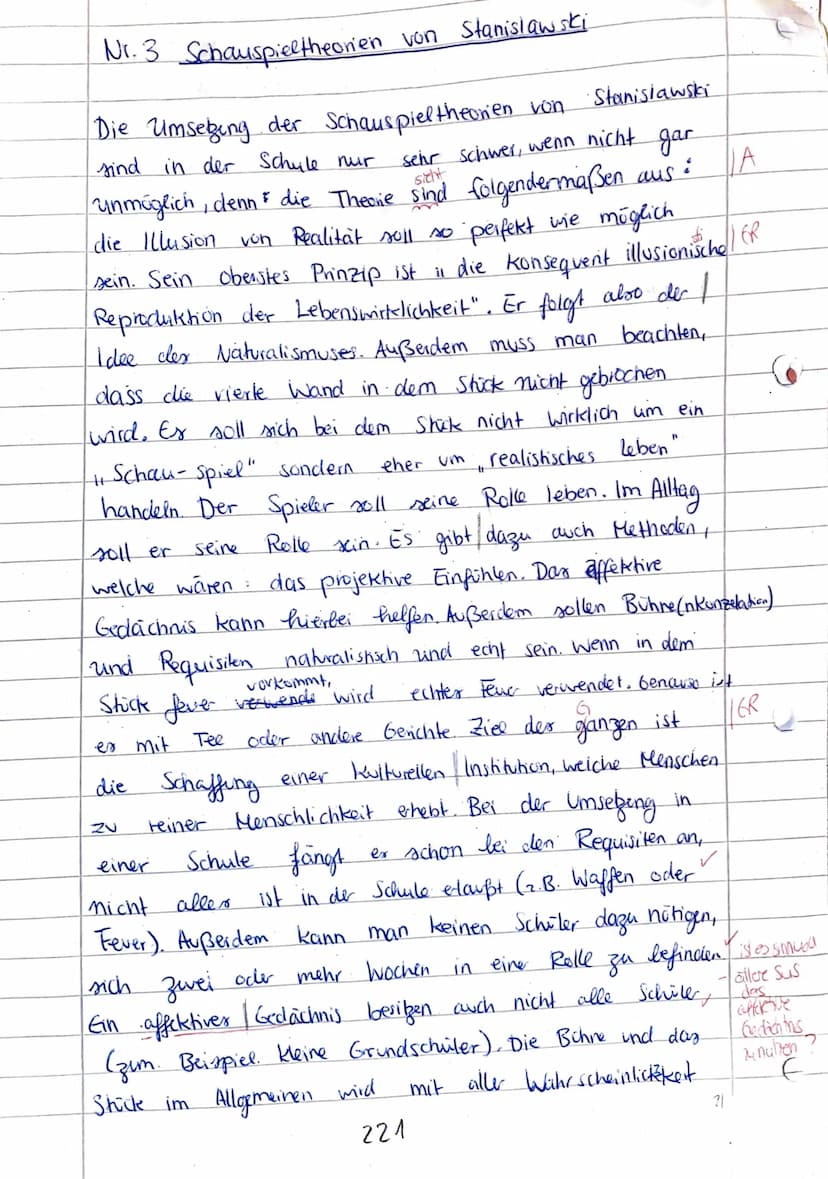 Nr. 3 Schauspieltheorien von Stanislawski
Die Umsetzung der Schauspieltheorien von Stanislawski
sind in der Schule nur sehr schwer, wenn nicht gar
unmöglich, denn die Theorie sind folgendermaßen aus: |A
sieht
die Illusion von Realität soll so perfekt wie möglich
sein. Sein oberstes Prinzip ist „die Konsequent illusionische |GR
Reproduktion der Lebenswirklichkeit". Er folgt also der
Idee des Naturalismuses. Außerdem muss man beachten,
dass die vierte Wand in dem Stück nicht gebrochen
wird. Es soll sich bei dem Stück nicht wirklich um ein
„Schau-spiel" sondern eher um „realistisches leben"
handeln. Der Spieler soll seine Rolle leben. Im Alltag
soll er seine Rolle sein. Es gibt dazu auch Methoden,
welche wären: das projektive Einfühlen. Das affektive
Gedächnis kann hierbei helfen. Außerdem sollen Bühne(nkonzelation)
und Requisiten naturalistisch und echt sein. Wenn in dem
Stück feuer vorkommt, wird echtes Feuer verwendet. Genauso ist
es mit Tee oder andere Gerichte. Ziel des ganzen ist |GR
G
die Schaffung einer Kulturellen Institution, welche Menschen
zu reiner Menschlichkeit erhebt. Bei der Umsetzung in
einer Schule fängt es schon bei den Requisiten an,
nicht alles ist in der Schule erlaubt (z.B. Waffen oder ✓
Feuer). Außerdem kann man keinen Schüler dazu nötigen,
sich zwei oder mehr Wochen in eine Rolle zu befinden. ✓
Ein affektives Gedächnis besitzen auch nicht alle Schüler,
(zum Beispiel kleine Grundschüler). Die Bühne und das
Stück im Allgemeinen wird mit aller Wahrscheinlichkeit
ist es sinnvoll
SuS
das
affektive
Gedächtnis
zu nutzen?
221